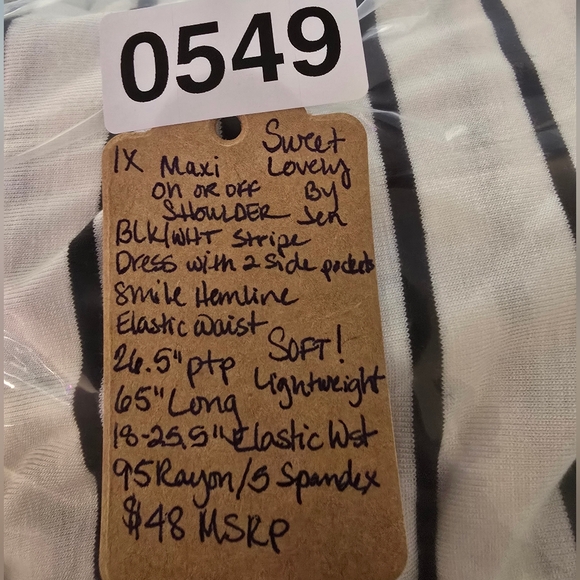 0549
1X Maxi
on or off
SHOULDER
Sweet
Lovely
By
Jen
BLK/WHT Stripe
Dress with 2 side pockets
Smile Hemline
Elastic Waist
26.5" ptp
SOFT!
Lightweight
65" Long
18-25.5" Elastic Wst
95 Rayon/5 Spandex
$48 MSRP